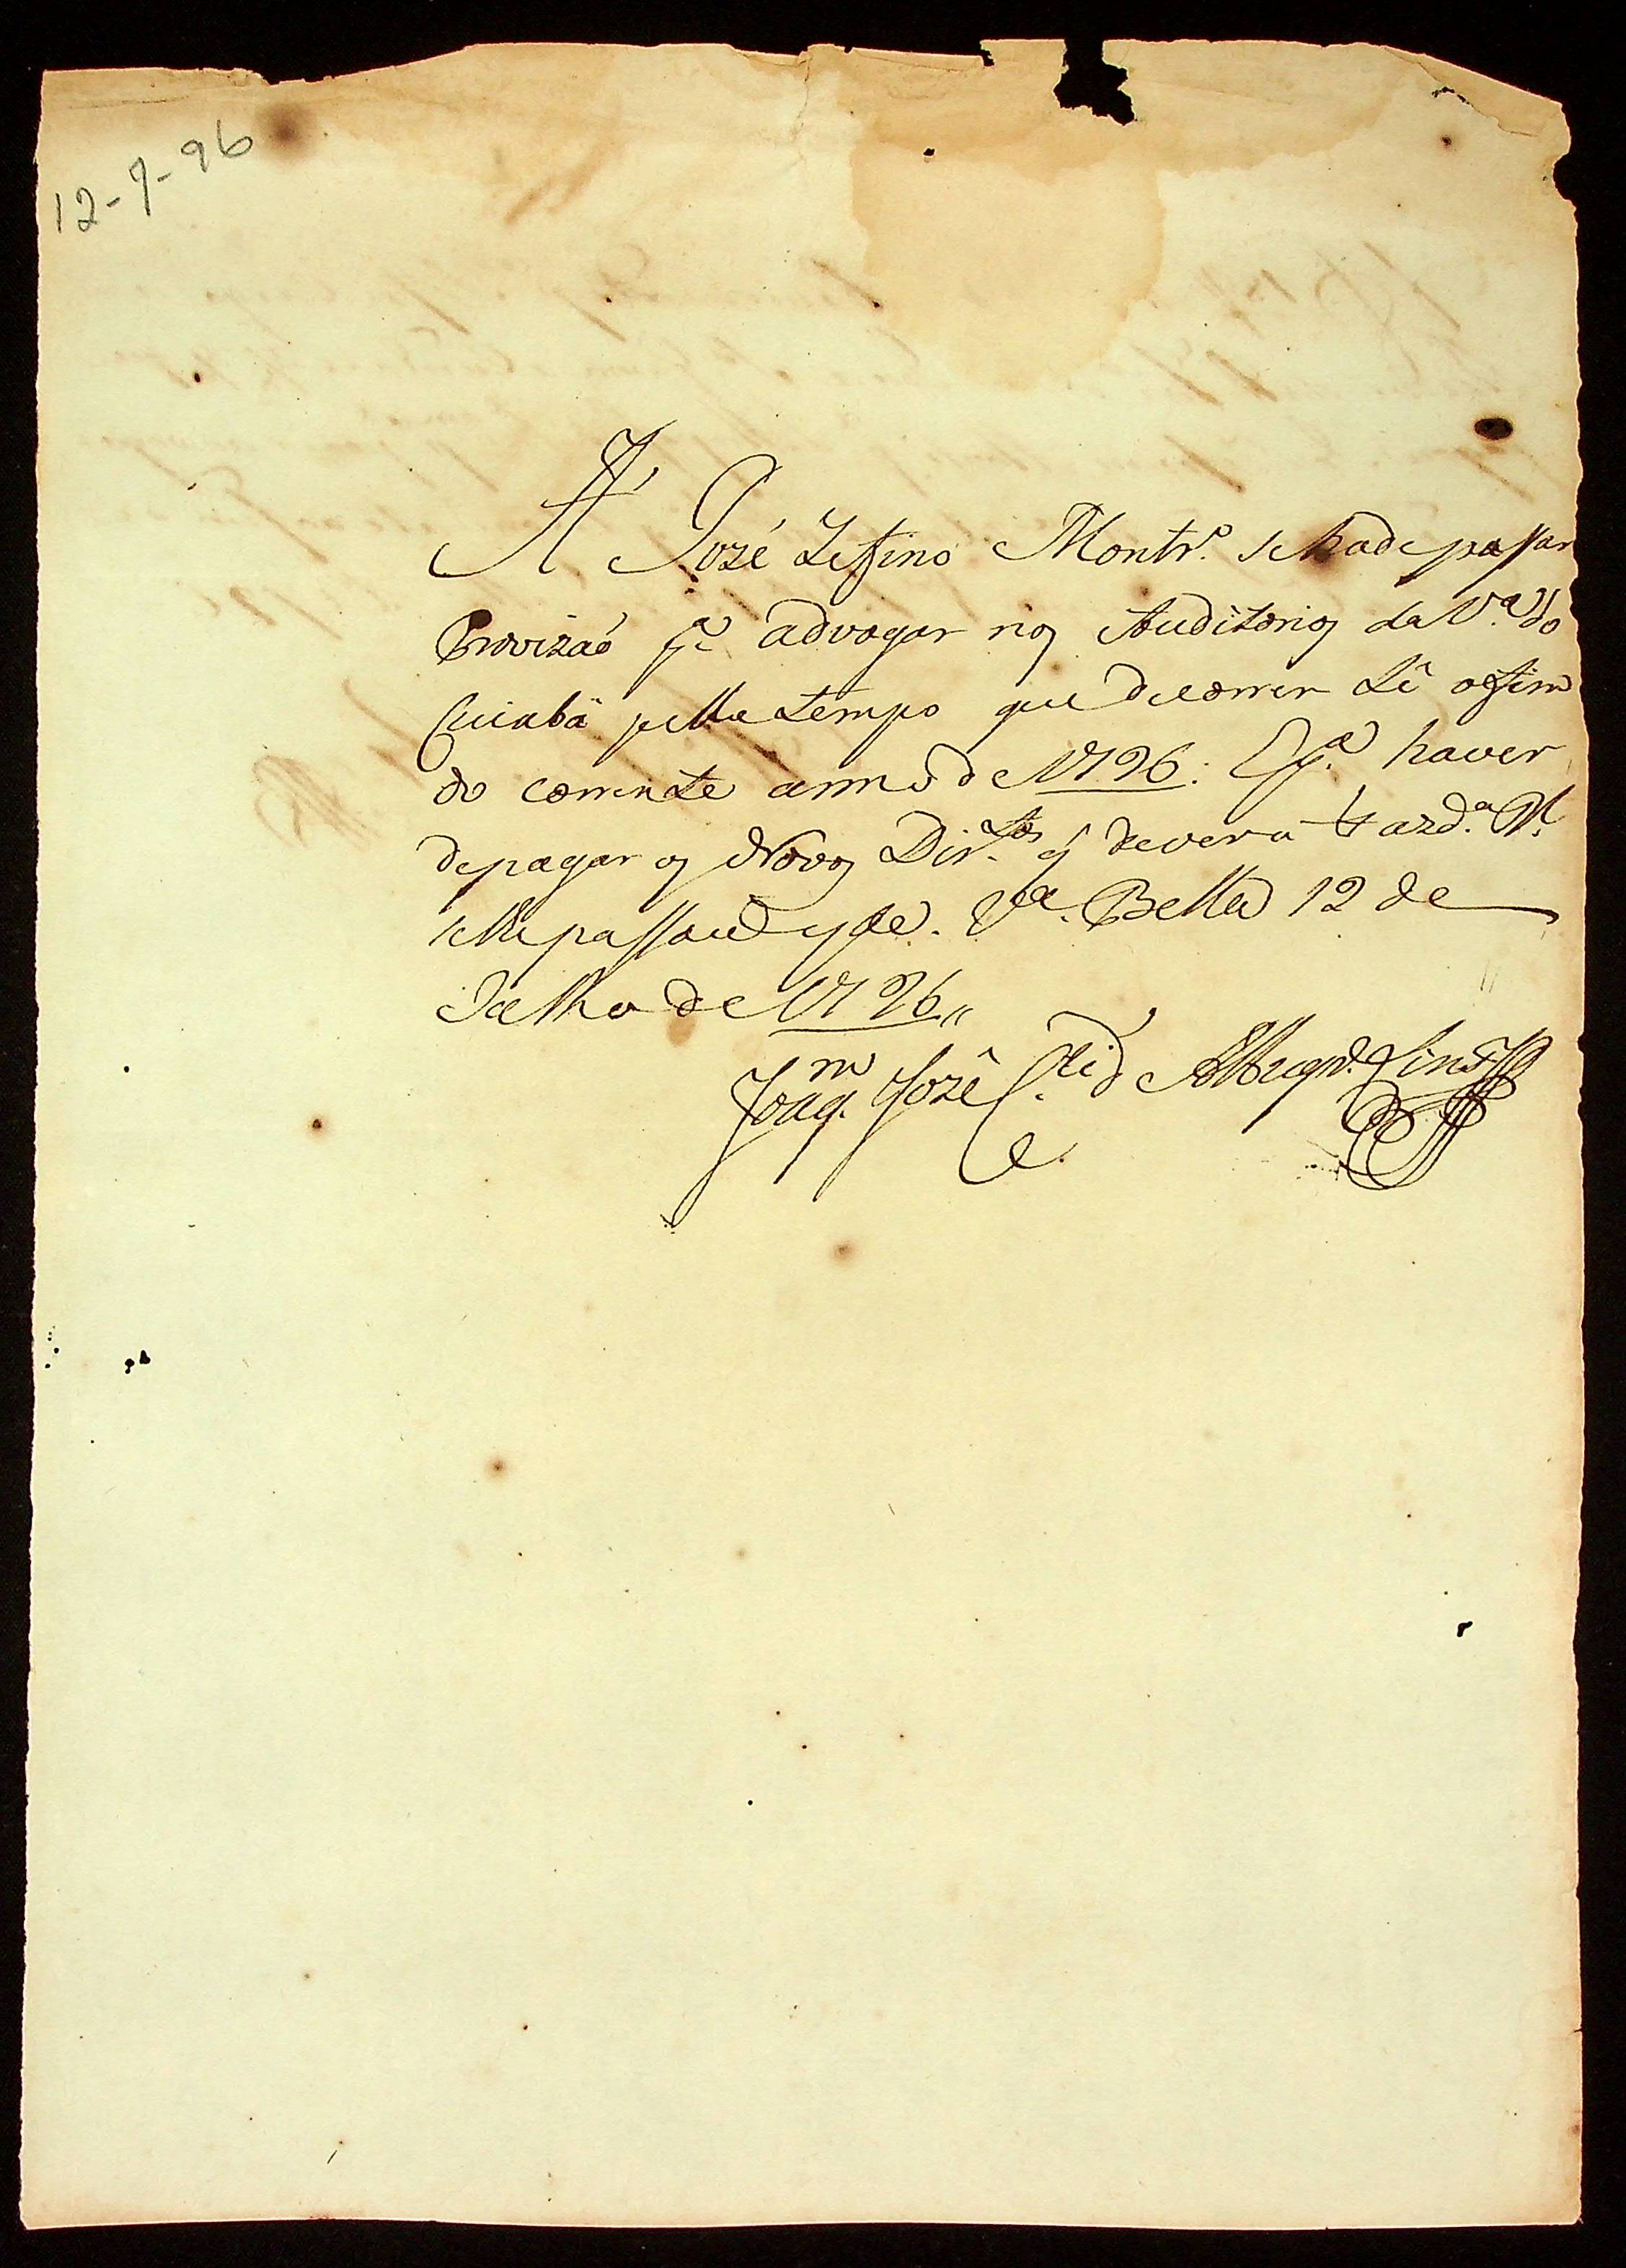 12-7-96
A José Zefino Montr.º se hade passar
Provizaõ p.ª advogar nos Auditorios da V.ª do
Cuiabá pello tempo que decorrer té o fim
do corrente anno de 1796. E p.ª haver
de pagar os Novos Dir.tos q̃ deverá a Fazd.ª R.
se lhe passou este. V.ª Bella 12 de
Julho de 1796,,
Joaq.m José Cav.